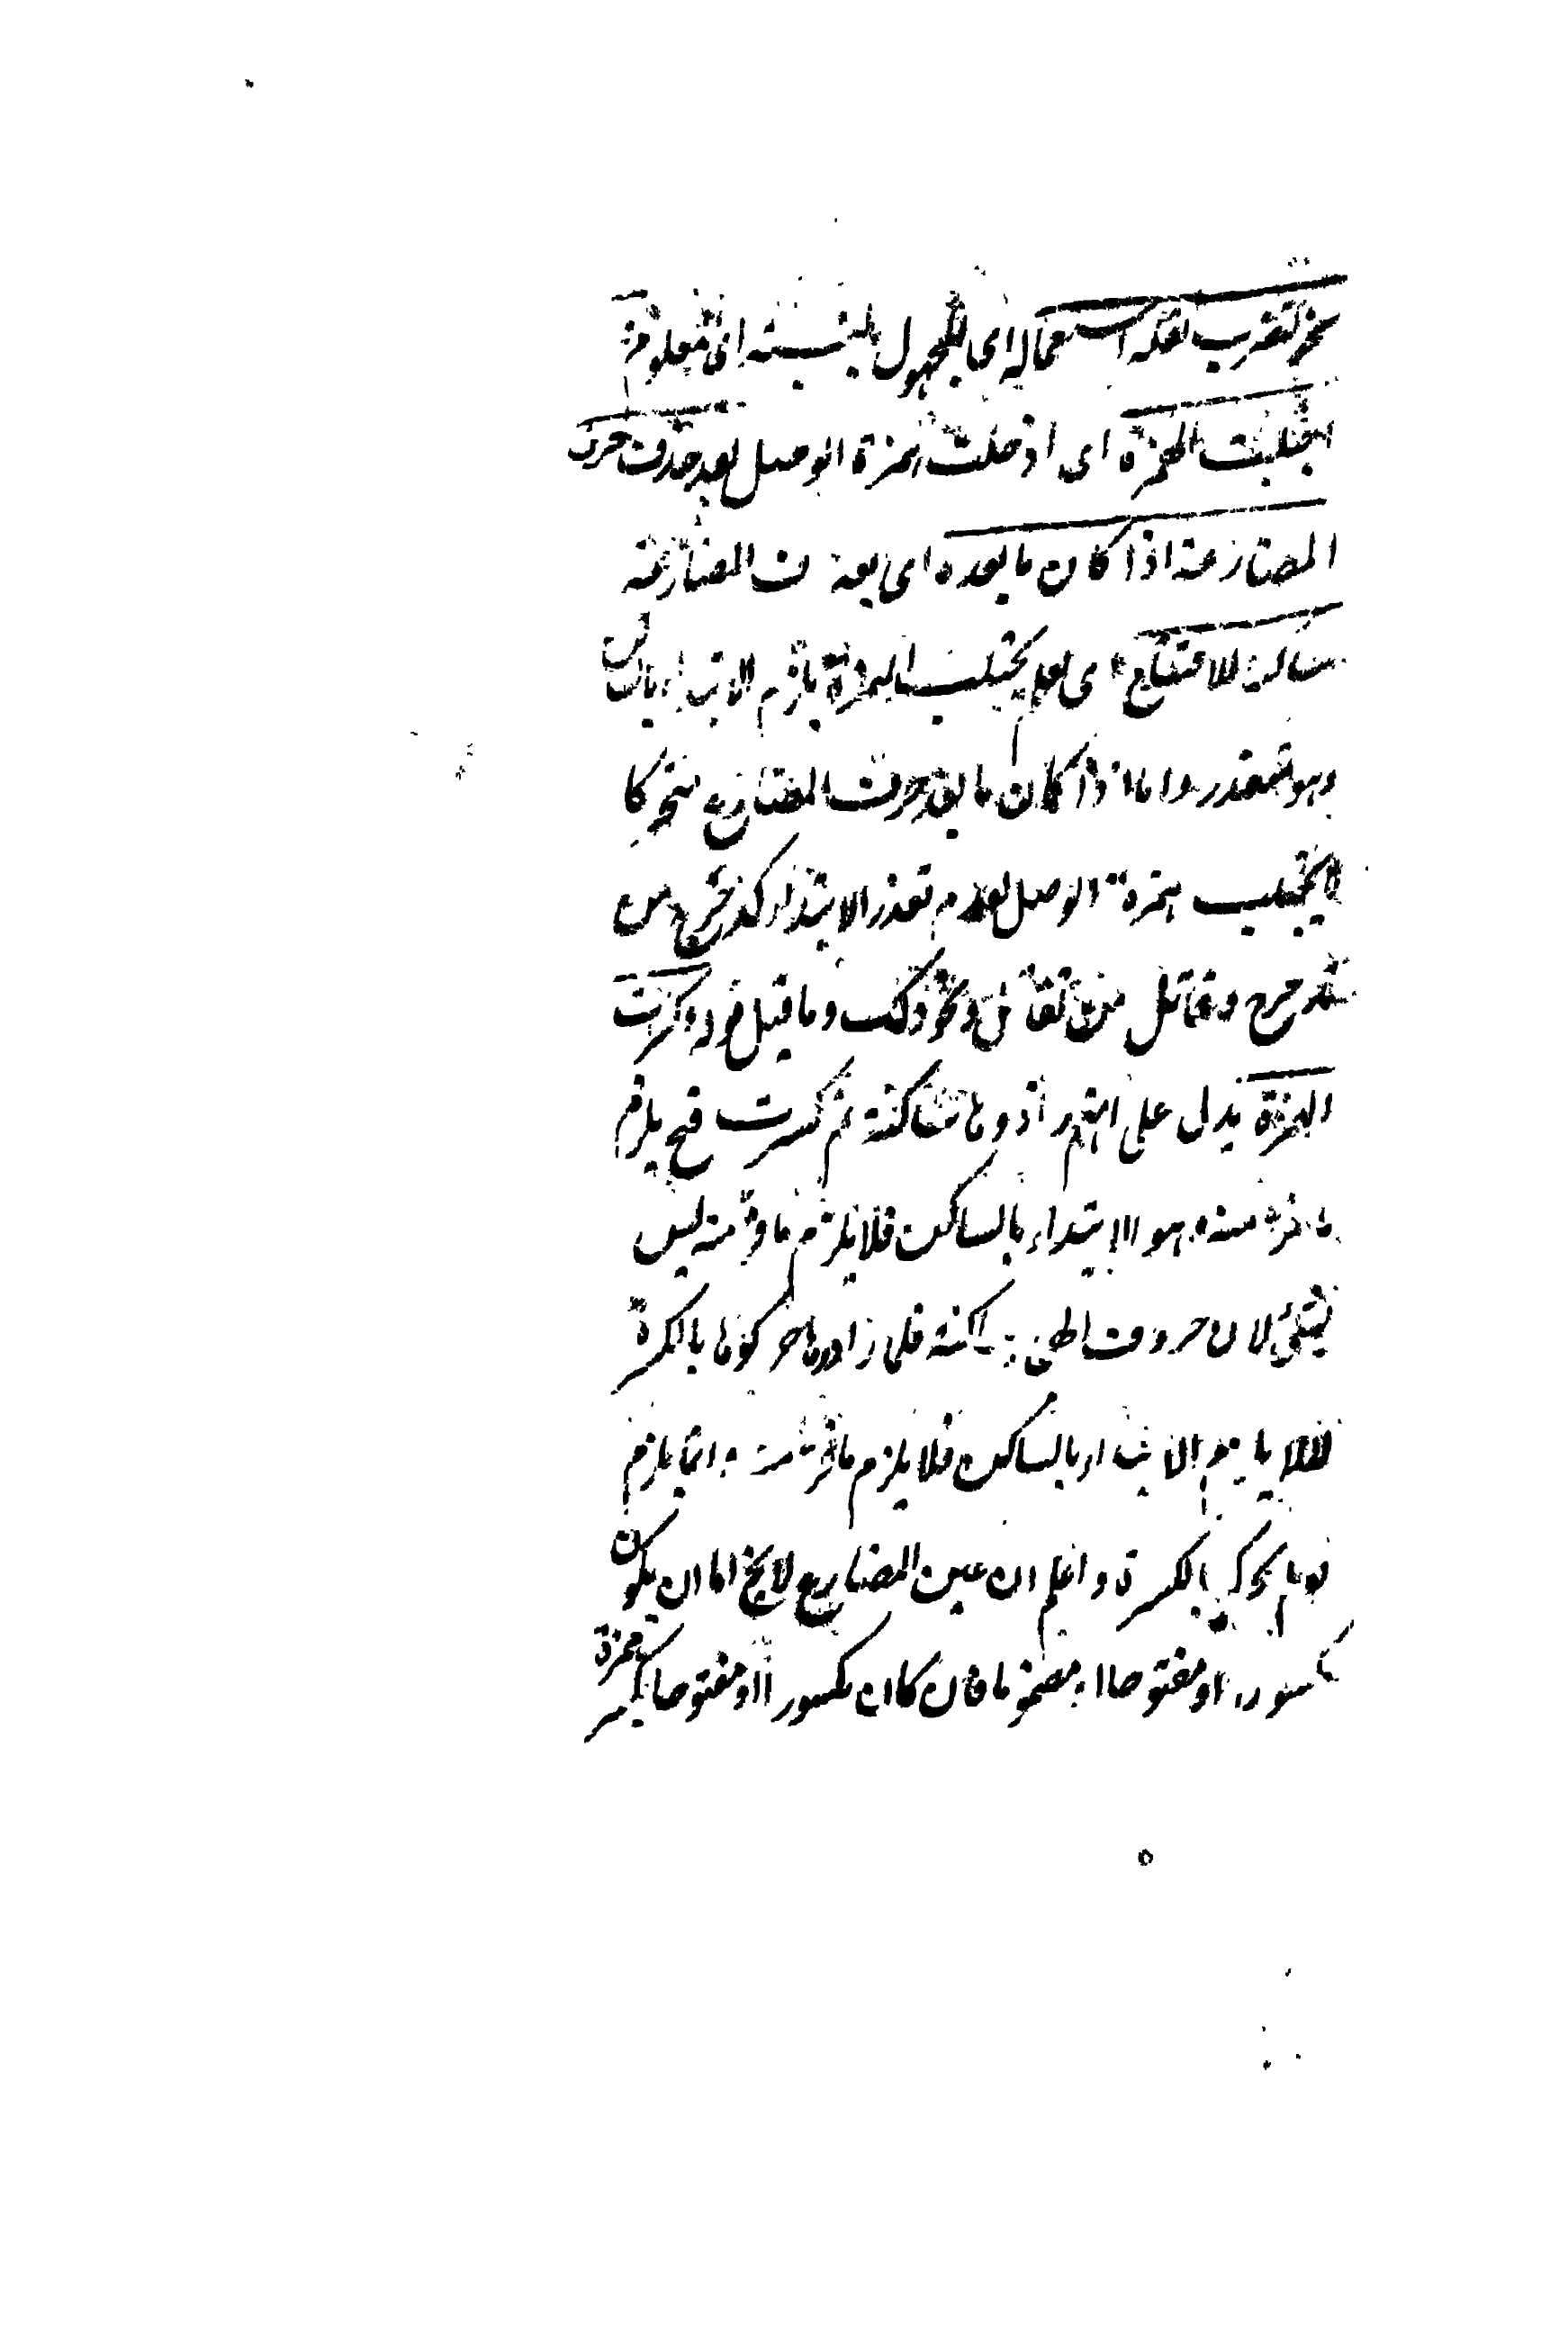 نحو لتضرب لقلة استعماله اى المجهول بالنسبة الى معلومه
اجتلبت الهمزة اى ادخلت همزة الوصل بعد حذف حرف
المضارعة اذا كان ما بعده اى بعد حرف المضارعة
ساكنا للامتناع اى لو لم يجتلب الهمزة يلزم الابتداء بالساكن
وهو متعذر واما اذا كان ما بعد حرف المضارع متحركا
لا يجتلب همزة الوصل لعدم تعذر الابتداء كدحرج من
تدحرج وقاتل من تقاتل ونحو ذلك وما قيل قوله وكسرت
الهمزة يدل على انهم زادوها ساكنة ثم كسرت فح يلزم
ما فر منه وهو الابتداء بالساكن فلا يلزم ما فر منه ليس
بشئ لان حروف ساكنة فلما زادوها حركوها بالكسرة
لئلا يلزم الابتداء بالساكن فلا يلزم ما فر منه وانما يلزم
لو لم يحرك بالكسرة واعلم ان عين المضارع لا يخ اما ان يكون
مكسورا او مفتوحا او مضموما فان كان مكسورا او مفتوحا يكسر همزة